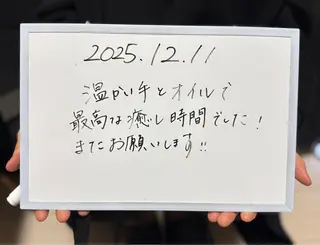 2025.12.11
温かい手とオイルで
最高な癒し時間でした!
またお願いします!!